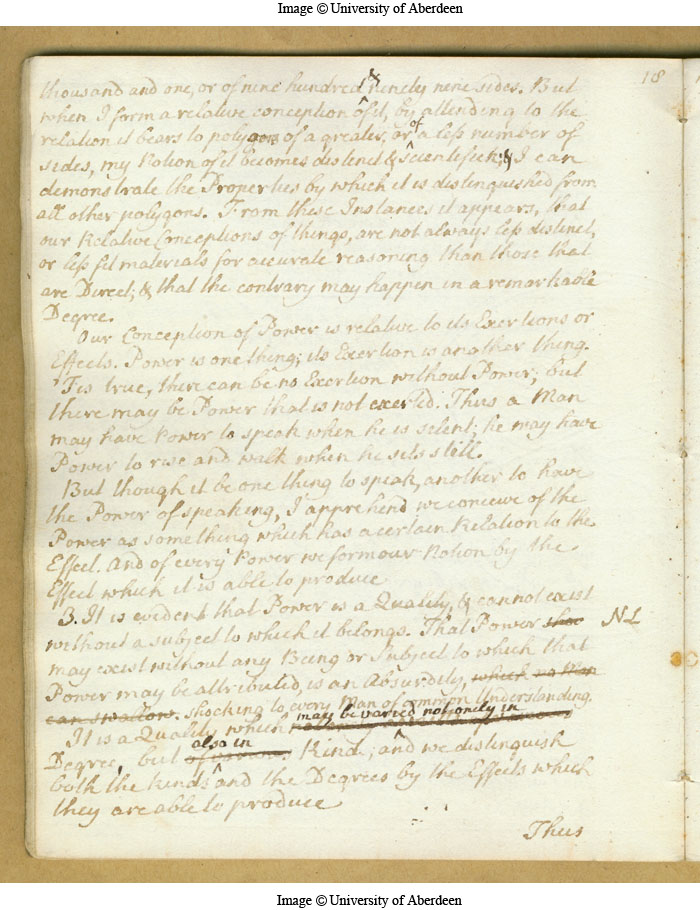 Image © University of Aberdeen
18
thousand and one, or of nine hundred & ninety nine sides. But
when I form a relative conception of it, by attending to the
relation it bears to polygons of a greater, or of a less number of
sides, my Notion of it becomes distinct & scientifick; & I can
demonstrate the Properties by which it is distinguished from
all other polygons. From these Instances it appears, that
our Relative Conceptions of things, are not always less distinct,
or less fit materials for accurate reasoning than those that
are Direct; & that the contrary may happen in a remarkable
Degree.
Our Conception of Power is relative to its Exertions or
Effects. Power is one thing; its Exertion is another thing.
'Tis true, there can be no Exertion without Power; but
there may be Power that is not exerted. Thus a Man
may have Power to speak when he is silent; he may have
Power to rise and walk when he sits still.
But though it be one thing to speak, another to have
the Power of speaking, I apprehend we conceive of the
Power as something which has a certain Relation to the
Effect. And of every Power we form our Notion by the
Effect which it is able to produce
3. It is evident that Power is a Quality, & cannot exist
without a subject to which it belongs. That Power NL
may exist without any Being or Subject to which that
Power may be attributed, is an Absurdity, which no Man
can swallow. shocking to every Man of common Understanding.
It is a Quality which may be varied not onely in
Degree, but also in Kind; and we distinguish
both the kinds and the Degrees by the Effects which
they are able to produce
Thus
Image © University of Aberdeen